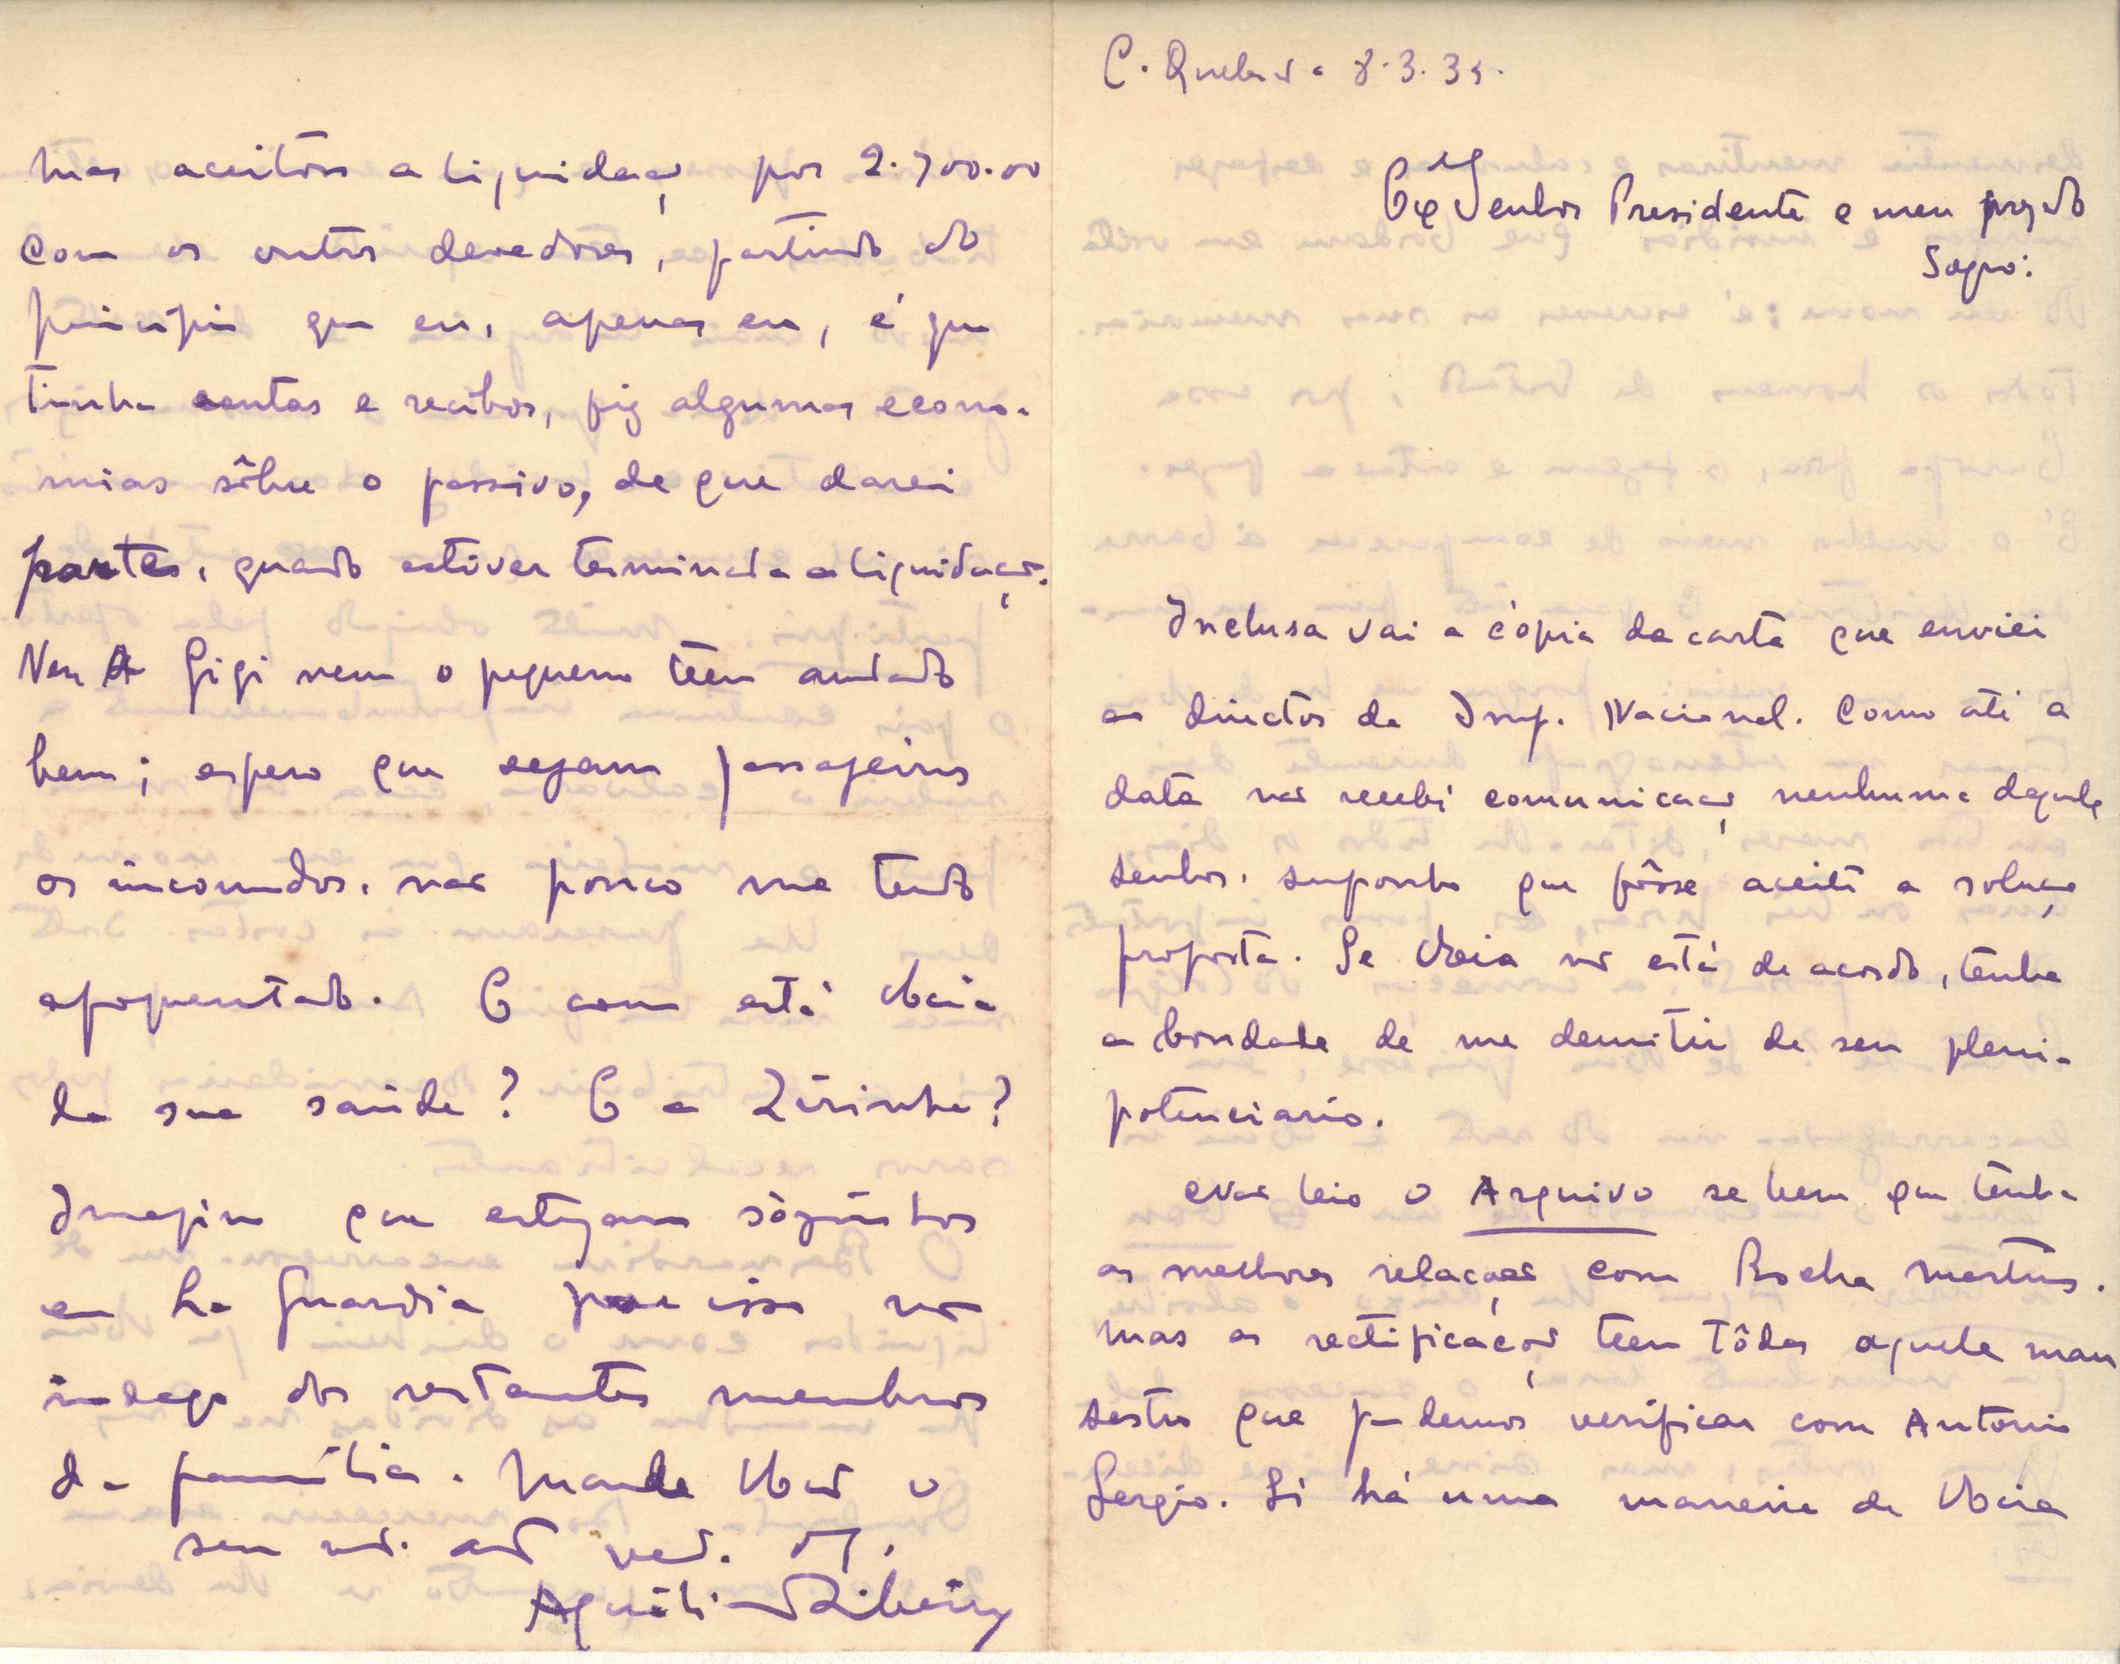 C. Quebrada 8.3.35.
Exmo Senhor Presidente e meu prezado
Sogro:
Inclusa vai a cópia da carta que enviei
ao director da Imp. Nacional. Como até a
data não recebi comunicação nenhuma daquele
senhor, suponho que fôsse aceite a solução
proposta. Se V. Ex.cia não está de acordo, tenha
a bondade de me demitir de seu pleni-
potenciario.
Não leio o Arquivo se bem que tenha
as melhores relações com Rocha Martins.
mas as rectificações teem tôdas aquele mau
sestro que pudemos verificar com Antonio
Sergio. Só há uma maneira de V. Ex.cia
mas aceitou a liquidação por 2.700.00
Com os outros devedores, partindo do
principio que eu, apenas eu, é que
tinha contas e recibos, fiz algumas econo-
mias sôbre o passivo, de que darei
partes, quando estiver terminada a liquidação.
Nem A Gigi nem o pequeno têem andado
bem; espero que sejam passageiros
os incomodos. não pouco me tendo
apoquentado. E como está V. Ex.cia
da sua saúde? E a Zirinha?
Imagino que estejam sòsinhos
em La Guardia por isso não
indago dos restantes membros
da familia. Mande V. Ex.cia ao
seu
Aquilino Ribeiro